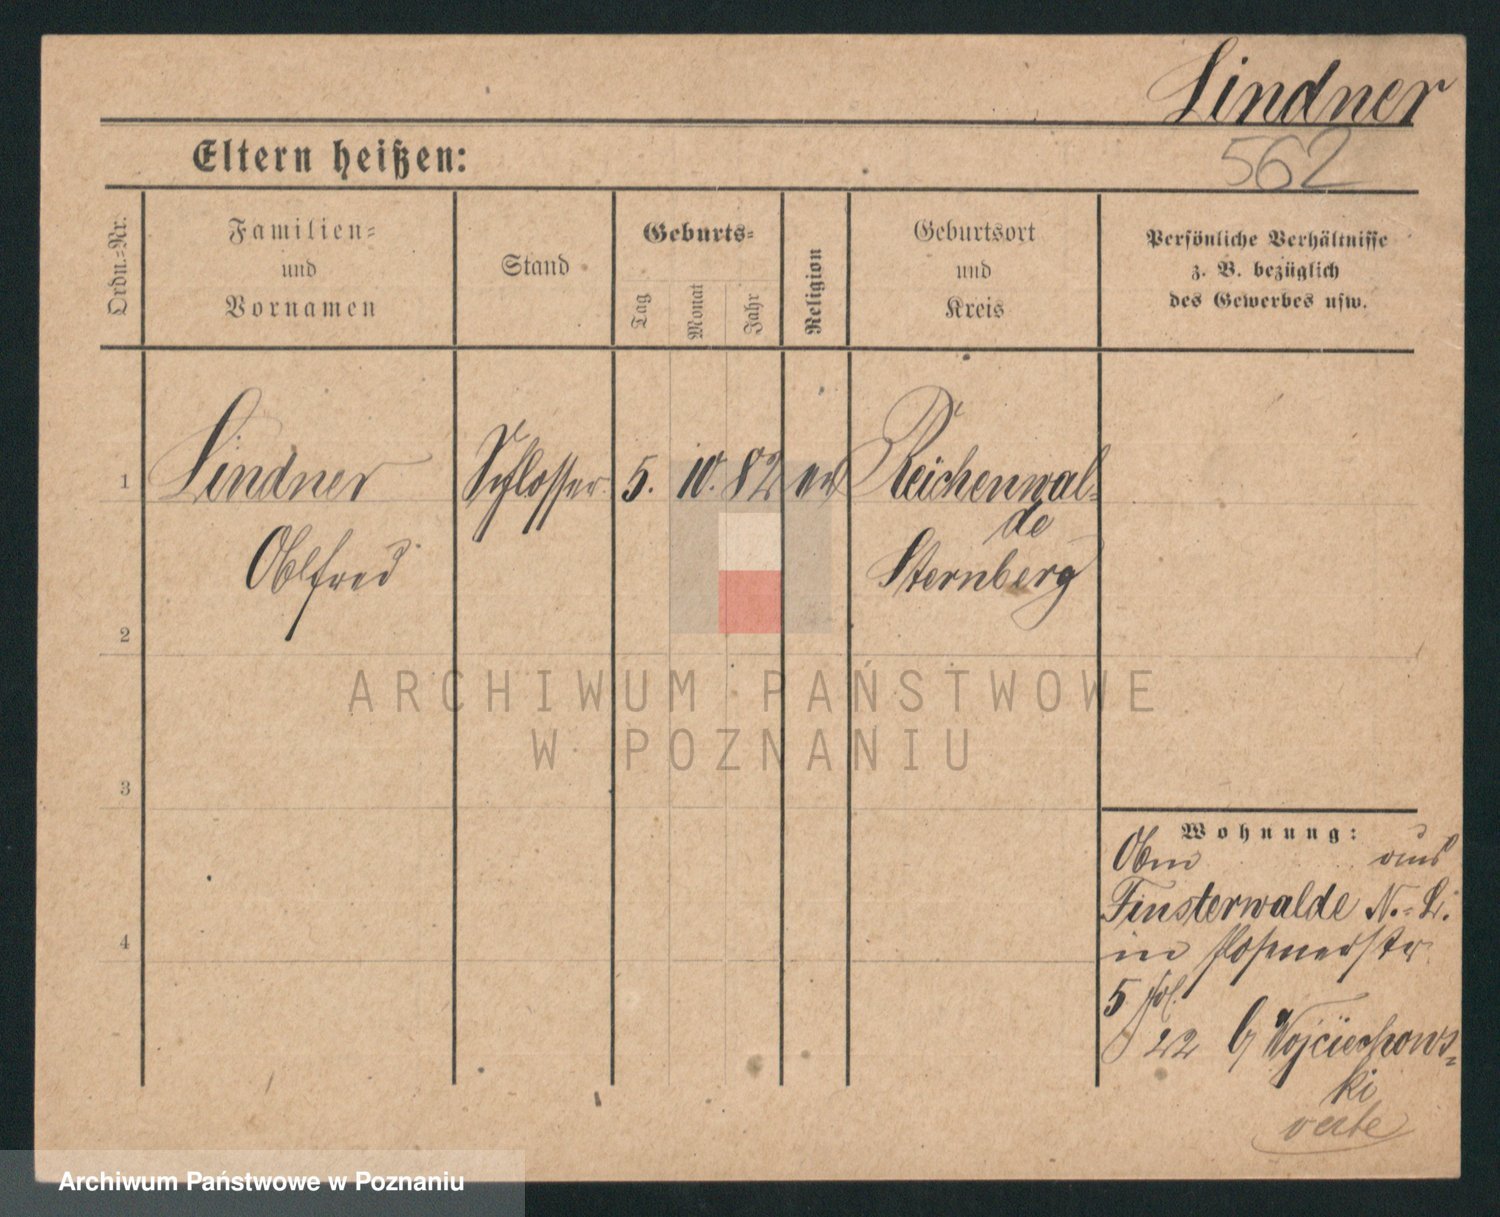 Lindner
562
Eltern heißen:
Ordn.-Nr.
Familien-
und
Vornamen
Stand
Geburts-
Tag
Monat
Jahr
Religion
Geburtsort
und
Kreis
Persönliche Verhältnisse
z. B. bezüglich
des Gewerbes usw.
1
Lindner Schlosser 5. 10. 82 ev Reichenwal-
de
Alfred Sternberg
2
ARCHIWUM PAŃSTWOWE
W POZNANIU
3
4
Wohnung:
aus
Finsterwalde N.-L.
in Posenerstr.
5
22 b/ Wojciechows-
ki
verte
Archiwum Państwowe w Poznaniu